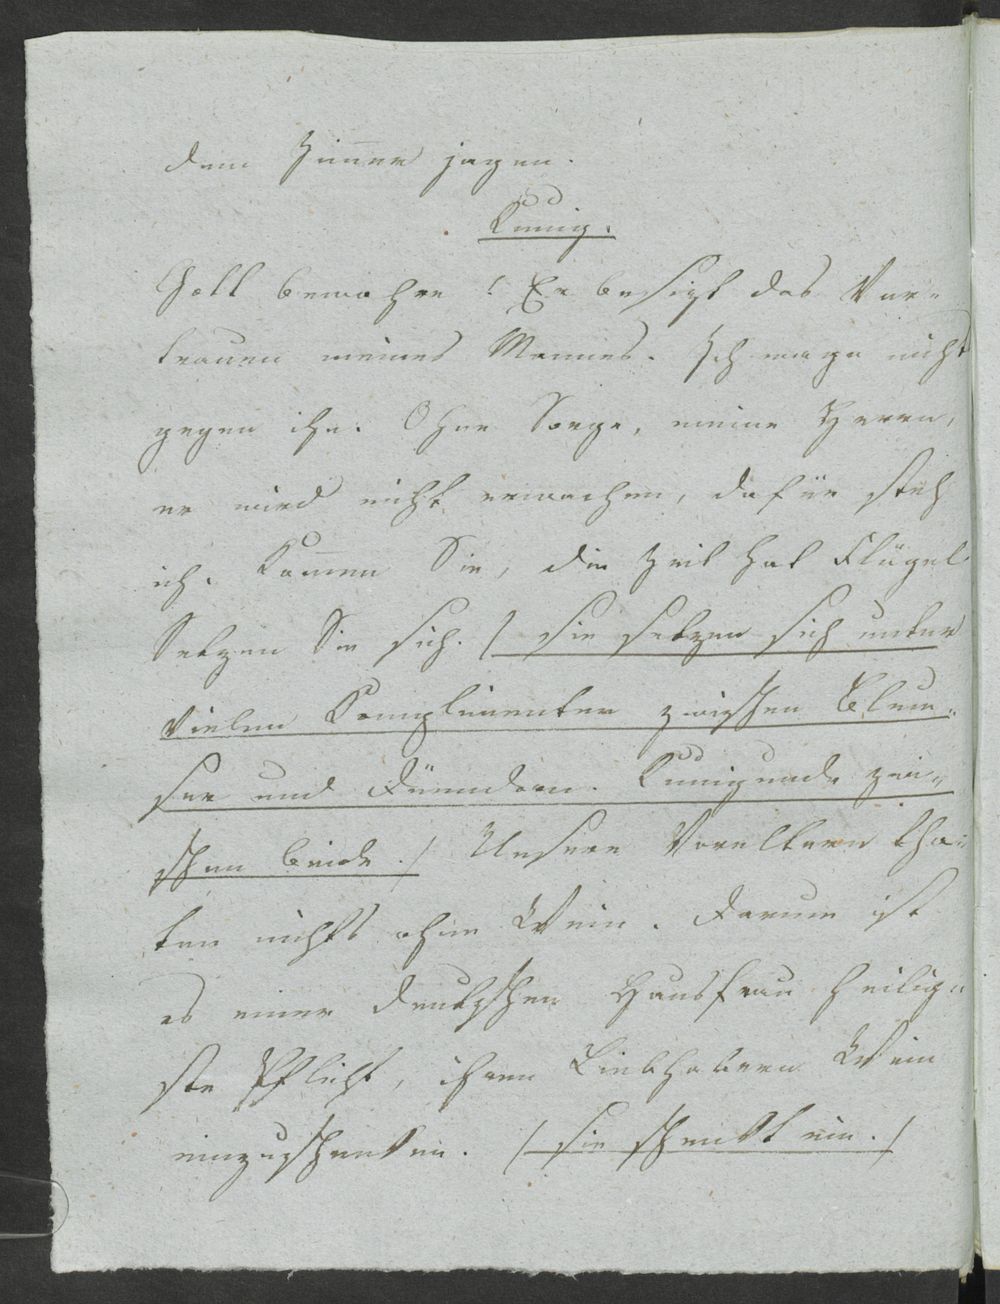 dem Zimmer jagen.
Kunig.
Gott bewahre! Er besizt das Ver-
trauen meines Mannes. Ich mags nicht
gegen ihn. Ohne Sorge, meine Herrn,
er wird nicht erwachen, dafür steh
ich. Kommen Sie, die Zeit hat Flügel
Setzen Sie sich. /sie setzen sich unter
vielen Complimenten zwischen
und Kunigunde zwi-
schen beide./ Unsere Vorältern tha-
ten nichts ohne Wein. Darum ist
es einer deutschen Hausfrau heilig-
ste Pflicht, ihren Liebhabern Wein
einzuschenken. /sie schenkt ein./